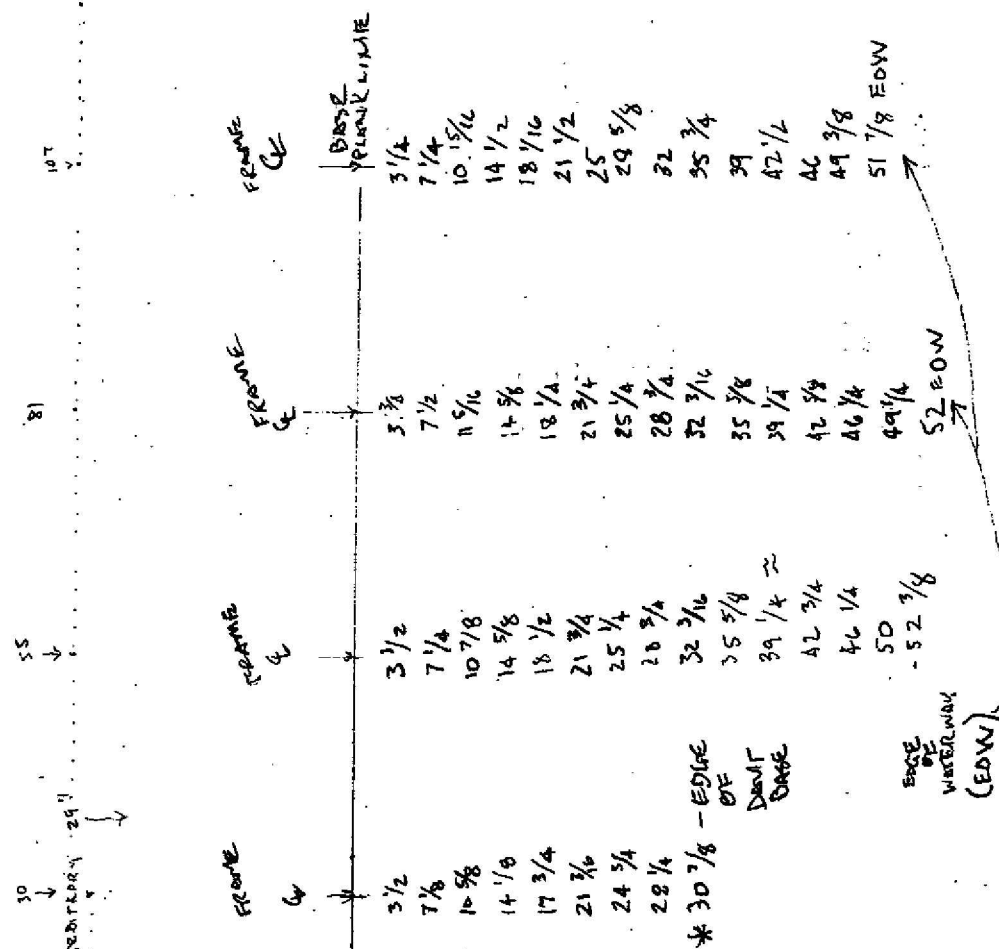 30
55
81
107
29"
FRAME
CL
3 1/2
7 1/8
10 5/8
14 1/8
17 3/4
21 3/16
24 3/4
28 1/4
* 30 7/8 - EDGE
OF
DAVIT
BASE
FRAME
CL
3 1/2
7 1/4
10 7/8
14 5/8
18 1/2
21 3/4
25 1/4
28 3/4
32 3/16
35 5/8
39 1/4 ≈
42 3/4
46 1/4
50
- 52 3/8
EDGE
OF
WATERWAY
(EOW)
FRAME
CL
3 3/8
7 1/2
11 5/16
14 5/8
18 1/4
21 3/4
25 1/4
28 3/4
32 3/16
35 5/8
39 1/4
42 5/8
46 1/4
49 1/4
52 EOW
FRAME
CL
BASE
PLANK LINE
3 1/4
7 1/4
10 15/16
14 1/2
18 1/16
21 1/2
25
28 5/8
32
35 3/4
39
42 1/2
46
49 3/8
51 7/8 EOW